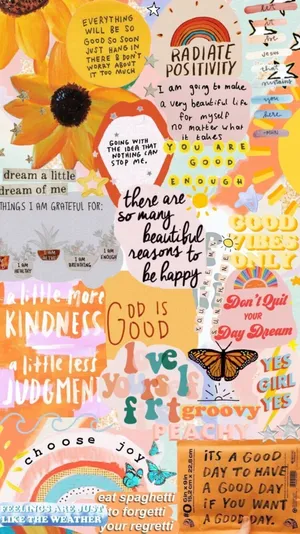 EVERYTHING
WILL BE SO
GOOD SO SOON
JUST HANG IN
THERE & DON'T
WORRY ABOUT
IT TOO MUCH
RADIATE
POSITIVITY
I am going to make
a very beautiful life
for myself
no matter what
it takes
GOING WITH
THE IDEA THAT
NOTHING CAN
STOP ME.
YOU ARE
GOOD
ENOUGH
dream a little
dream of me
THINGS I AM GRATEFUL FOR:
I AM
HEALTHY
I AM
BREATHING
I AM
ENOUGH
there are
so many
beautiful
reasons to
be happy
GOOD
VIBES
ONLY
a little more
KINDNESS
a little less
JUDGMENT
GOD IS
GOOD
Don't Quit
YOUR
Day Dream
love
yourself
frt
groovy
PEACHY
YES
GIRL
YES
choose joy
FEELINGS ARE JUST
LIKE THE WEATHER
eat spaghetti
to forgetti
your regretti
6 in x 9 in
15.2 cm x 22.8 cm
IT'S A GOOD
DAY TO HAVE
A GOOD DAY
IF YOU WANT
A GOOD DAY.